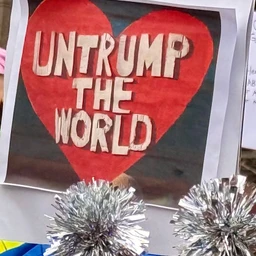 UNTRUMP
THE
WORLD